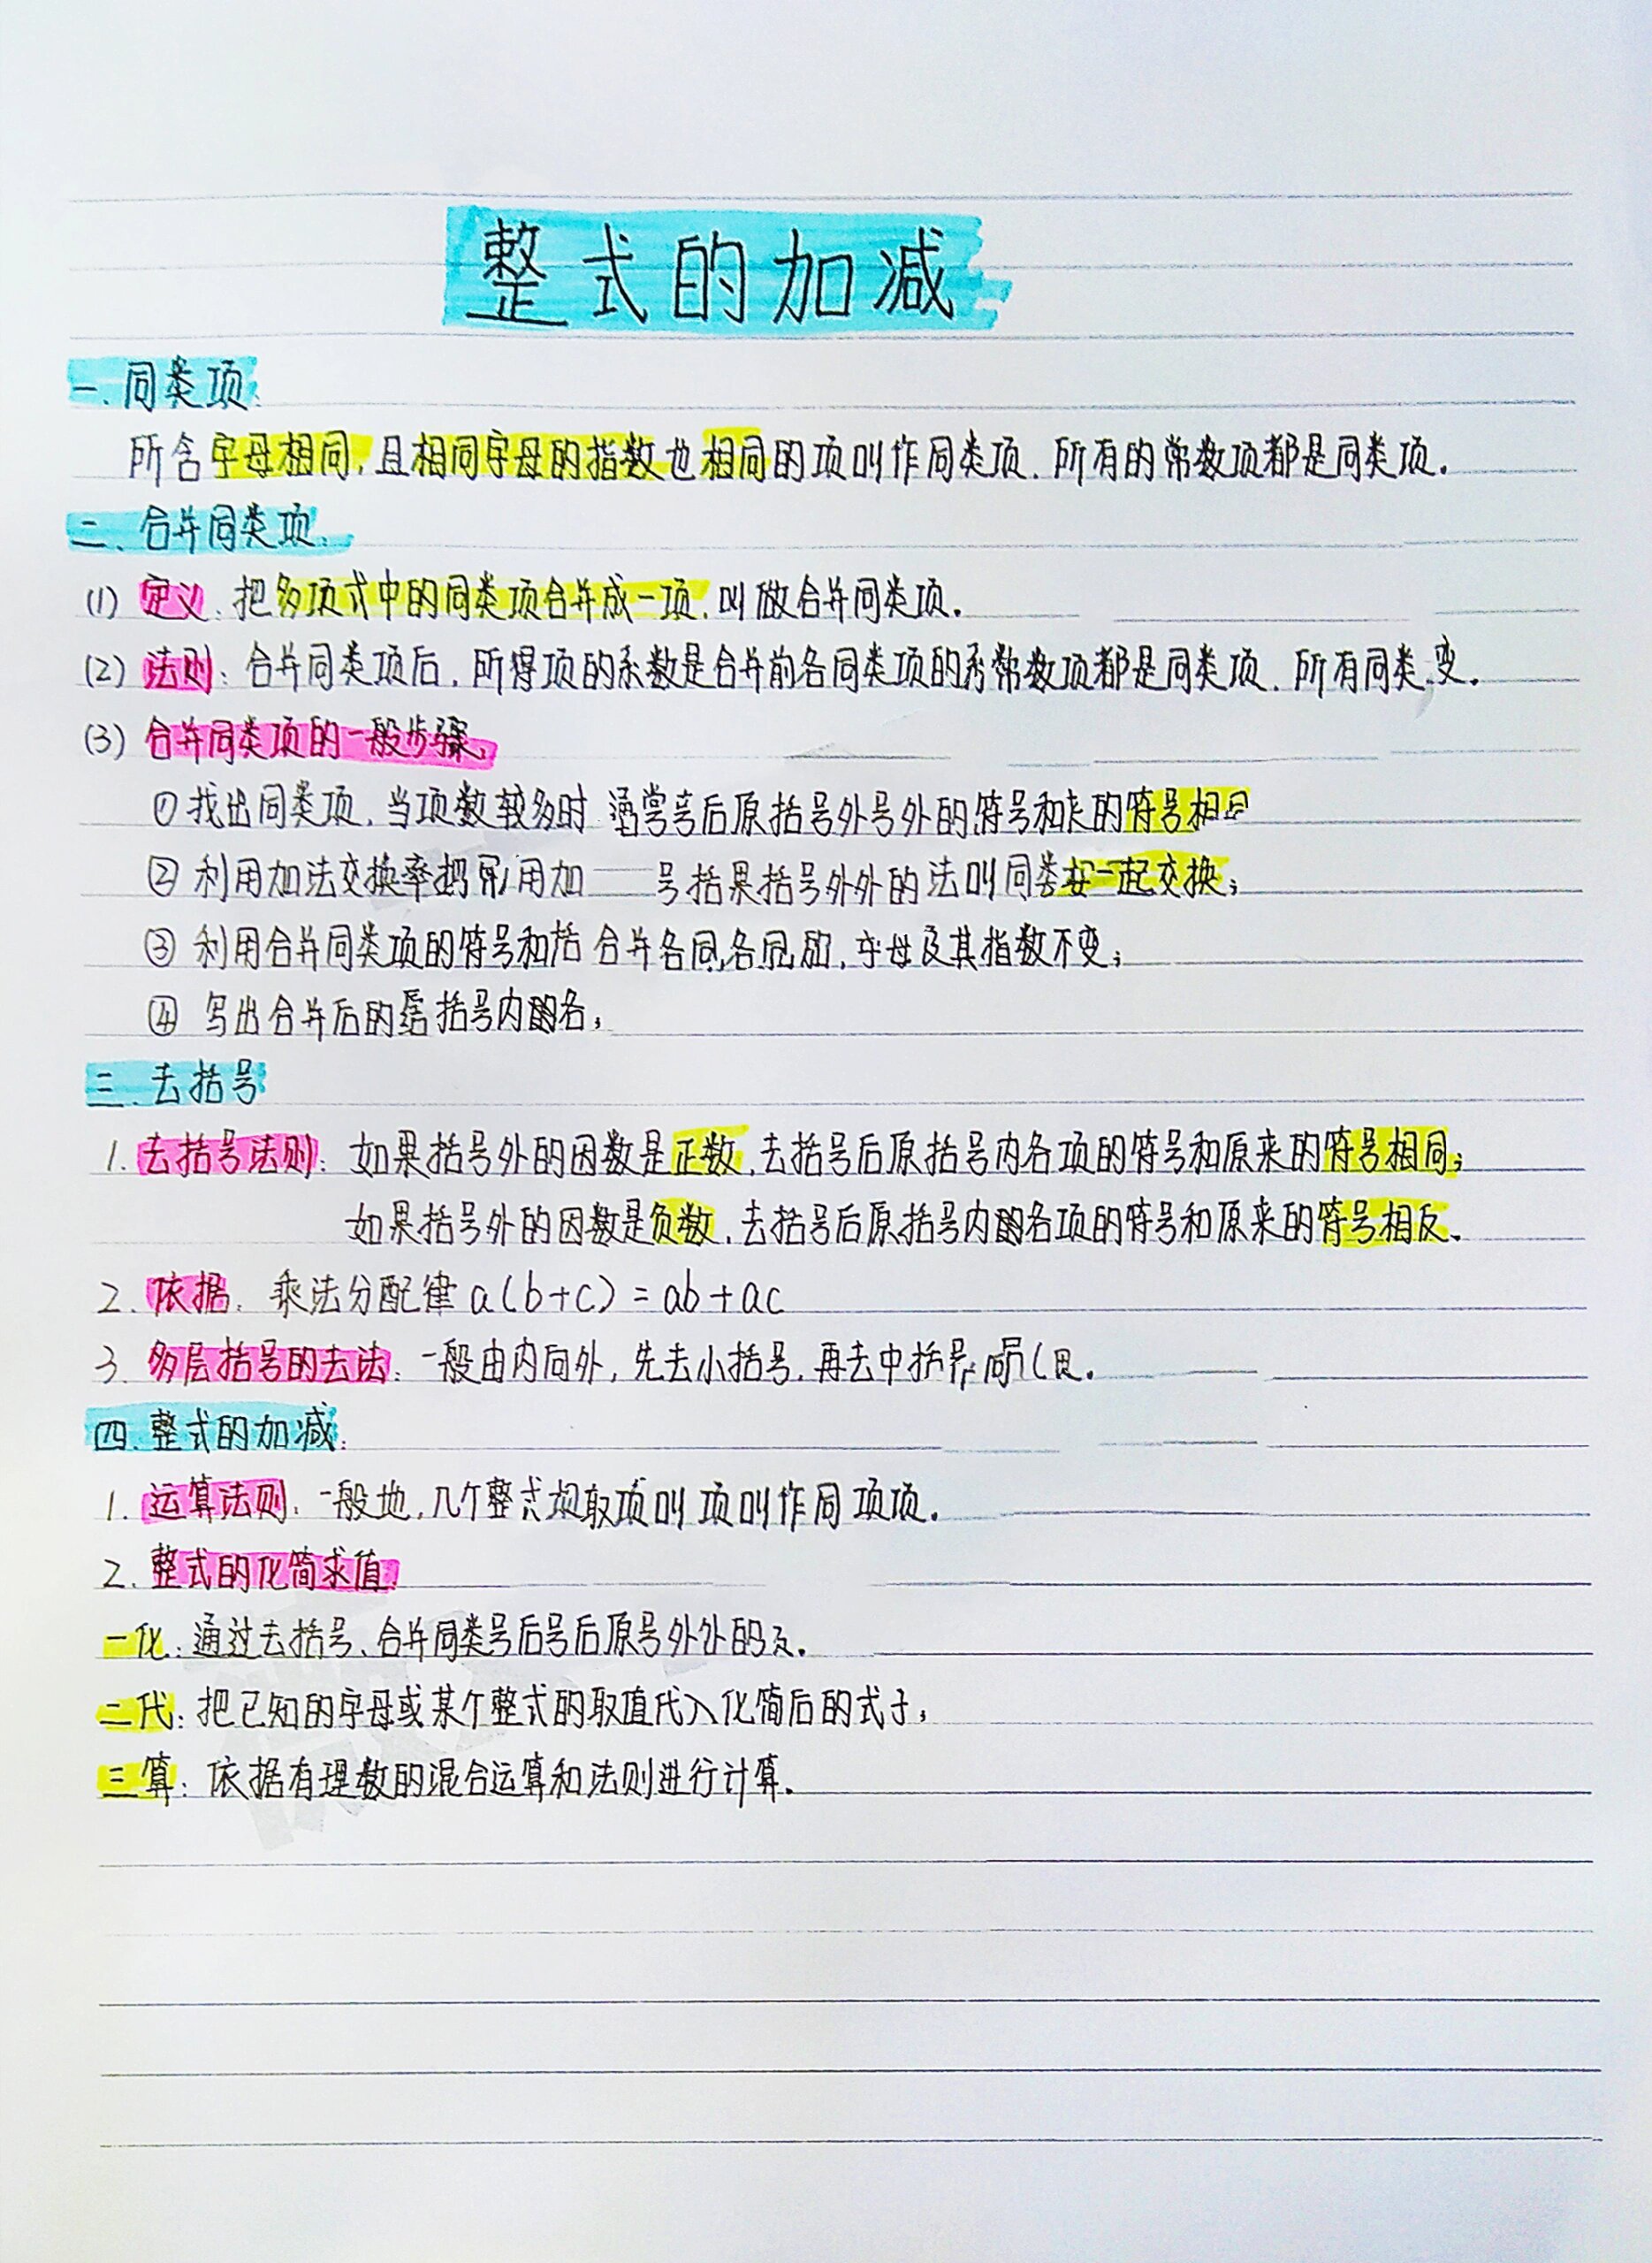 整式的加减
一. 同类项:
所含字母相同, 且相同字母的指数也相同的项叫作同类项. 所有的常数项都是同类项.
二. 合并同类项:
(1) 定义: 把多项式中的同类项合并成一项, 叫做合并同类项.
(2) 法则: 合并同类项后, 所得项的系数是合并前各同类项的系常数项都是同类项. 所有同类 变.
(3) 合并同类项的一般步骤:
① 找出同类项, 当项数较多时 通常 后原括号外号外的符号和 的符号相
② 利用加法交换率把 用加 号括果括号外外的法叫同类 一起交换;
③ 利用合并同类项的符号和括 合并各同, 各同 , 字母及其指数不变;
④ 写出合并后的 括号内的各;
三. 去括号
1. 去括号法则: 如果括号外的因数是正数, 去括号后原括号内各项的符号和原来的符号相同;
如果括号外的因数是负数, 去括号后原括号内的各项的符号和原来的符号相反.
2. 依据: 乘法分配律 a(b+c)=ab+ac
3. 多层括号的去法: 一般由内向外, 先去小括号, 再去中括
四. 整式的加减:
1. 运算法则: 一般地, 几个整式 取项叫 项叫作同 项项.
2. 整式的化简求值:
一化: 通过去括号、合并同类号后号后原号外外的
二代: 把已知的字母或某个整式的取值代入化简后的式子;
三算: 依据有理数的混合运算和法则进行计算.